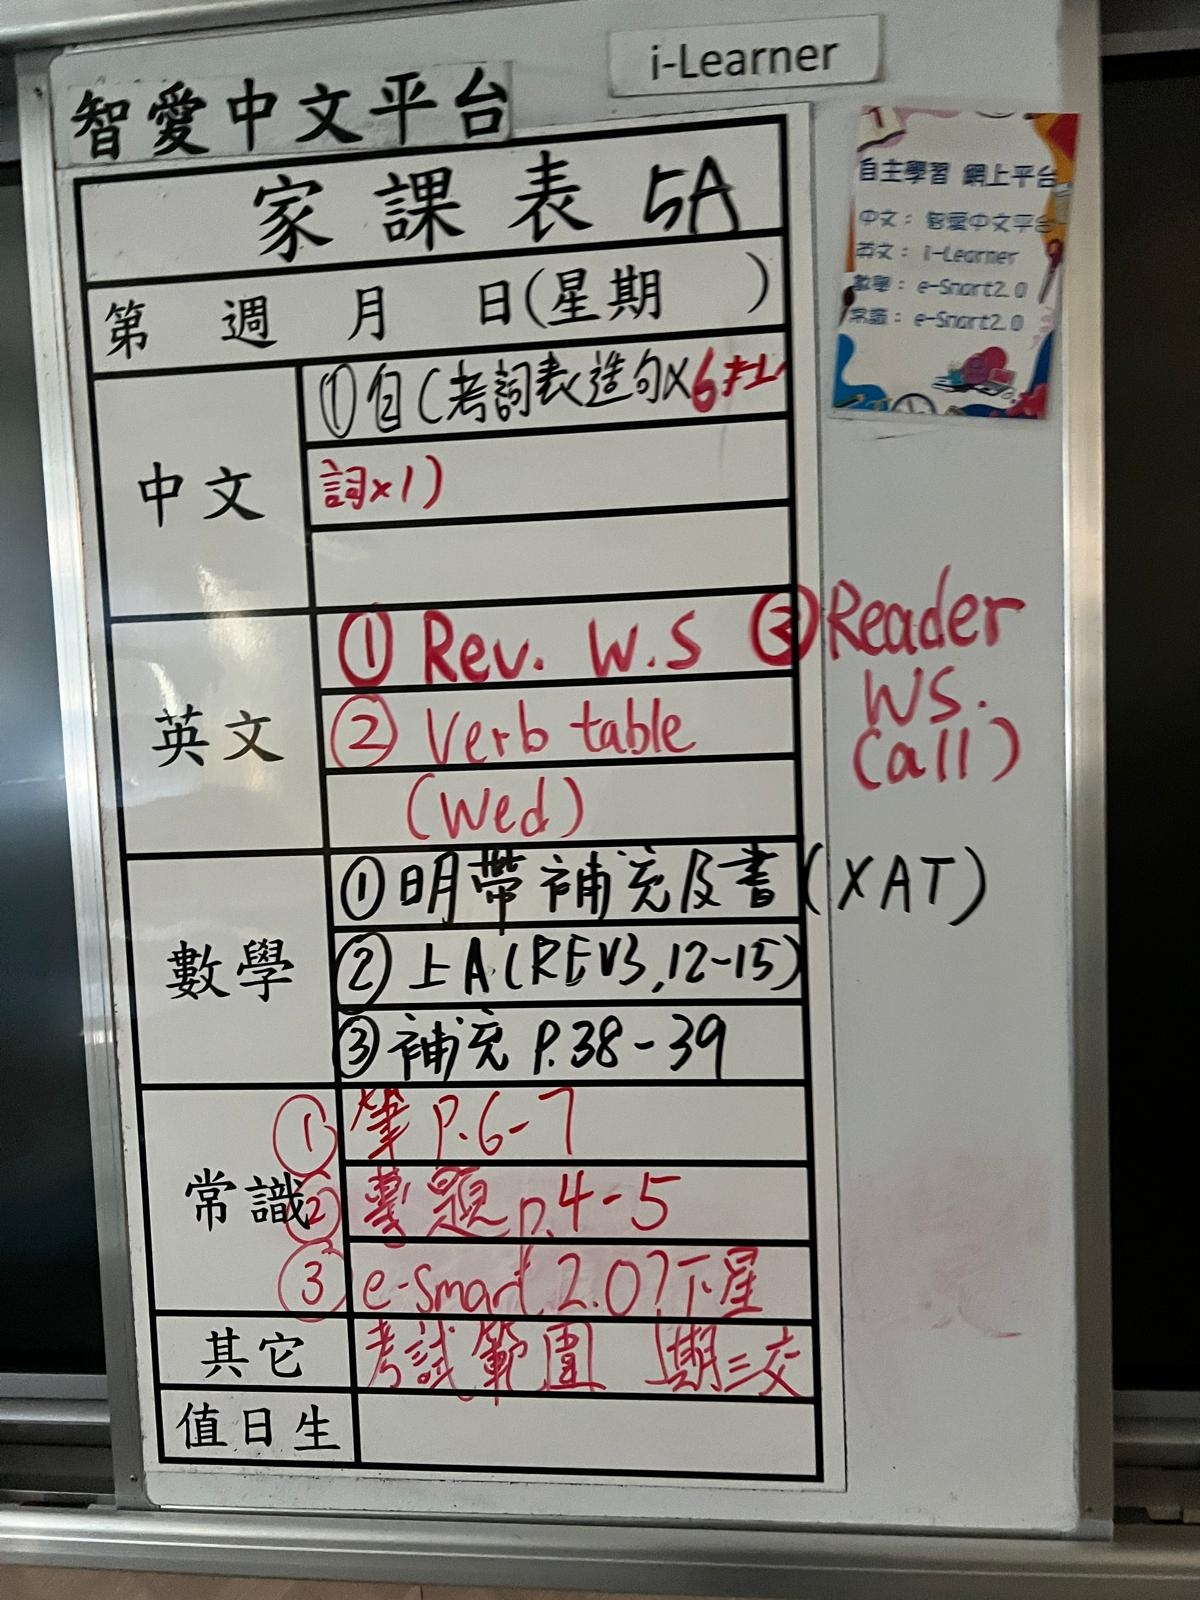 i-Learner
智愛中文平台
家課表 5A
第 週 月 日(星期 )
中文
①自(考詞表造句x6
詞x1)
英文
① Rev. W.S ③ Reader
WS.
(all)
② Verb table
(Wed)
數學
①明帶補充及書(XAT)
②上A(REV3,12-15)
③補充 P.38-39
常識
① 筆 P.6-7
② 專題 p.4-5
③ e-Smart 2.0 下星
其它
考試範圍 期三交
值日生
自主學習 網上平台
中文: 智愛中文平台
英文: i-Learner
數學: e-Smart2.0
常識: e-Smart2.0